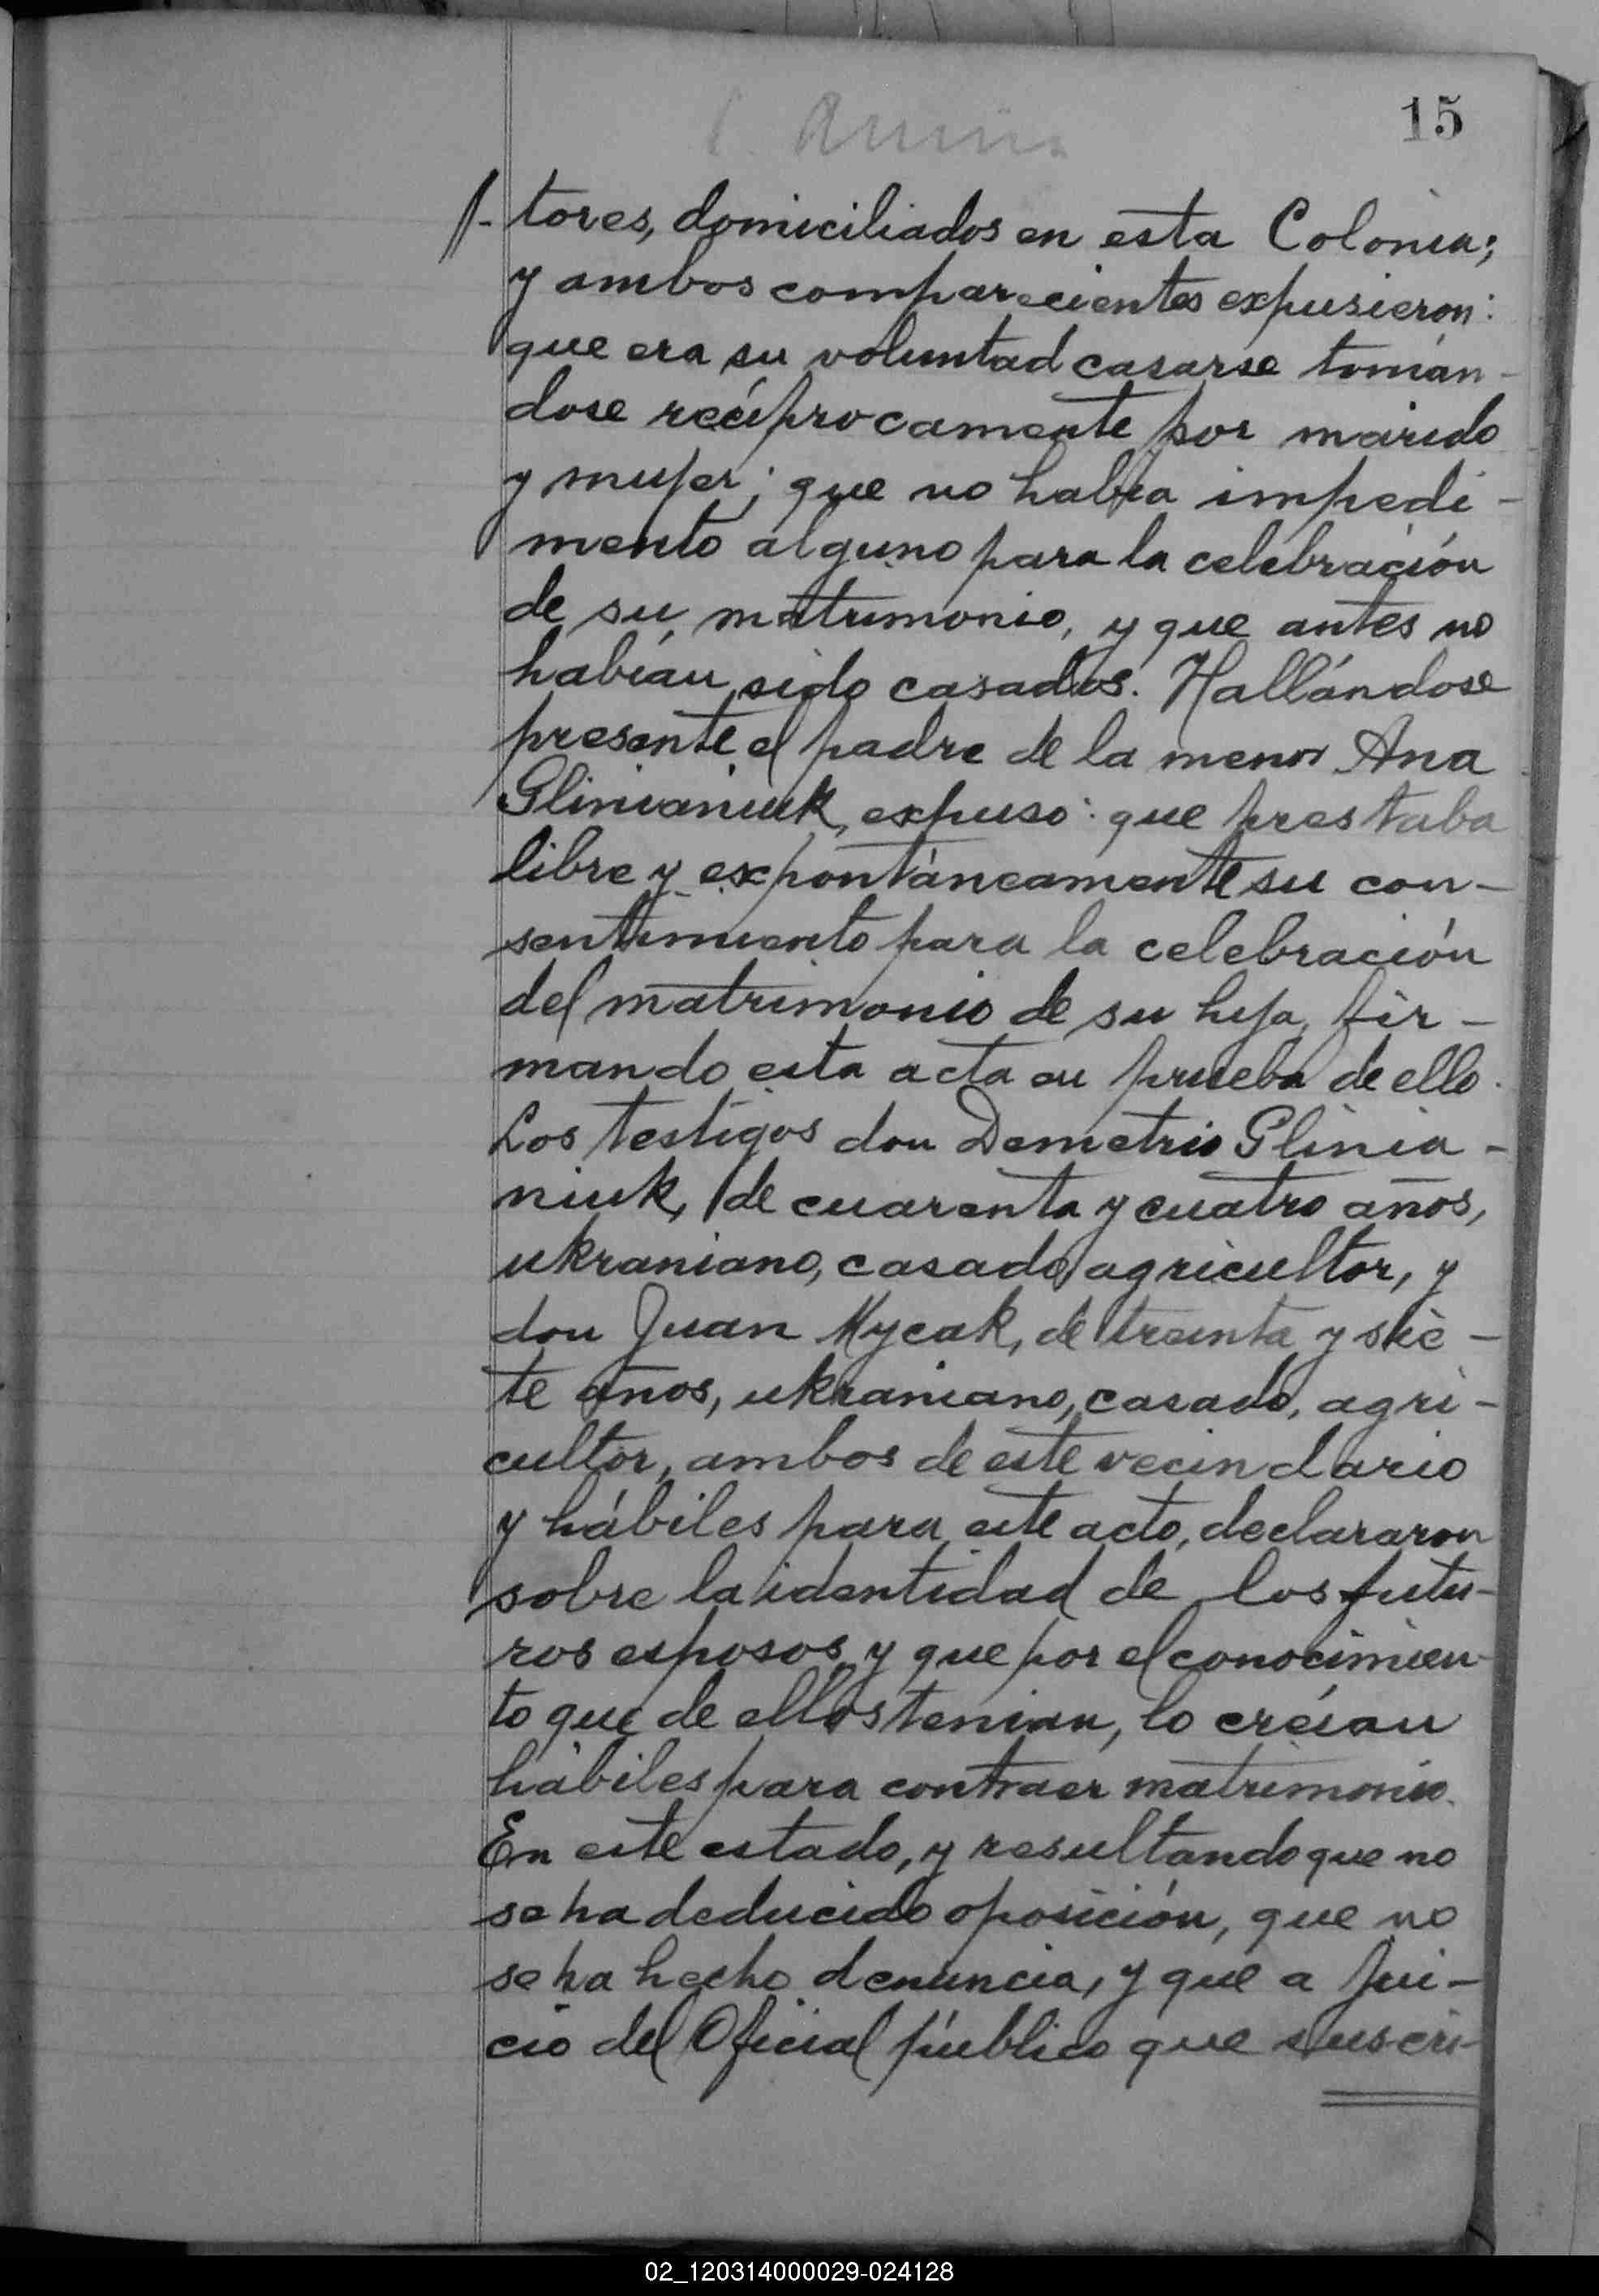 15
tores, domiciliados en esta Colonia;
y ambos comparecientes expusieron:
que era su voluntad casarse tomán-
dose recíprocamente por marido
y mujer; que no había impedi-
mento alguno para la celebración
de su matrimonio, y que antes no
habían sido casados. Hallándose
presente el padre de la menor Ana
Glinianiuk, expuso: que prestaba
libre y expontáneamente su con-
sentimiento para la celebración
del matrimonio de su hija, fir-
mando esta acta en prueba de ello.
Los testigos don Demetrio Glinia-
niuk, de cuarenta y cuatro años,
ukraniano, casado, agricultor, y
don Juan Mycak, de treinta y sie-
te años, ukraniano, casado, agri-
cultor, ambos de este vecindario
y hábiles para este acto, declararon
sobre la identidad de los futu-
ros esposos, y que por el conocimien-
to que de ellos tenian, lo creían
hábiles para contraer matrimonio.
En este estado, y resultando que no
se ha deducido oposición, que no
se ha hecho denuncia, y que a jui-
cio del Oficial público que suscri-
02_120314000029-024128